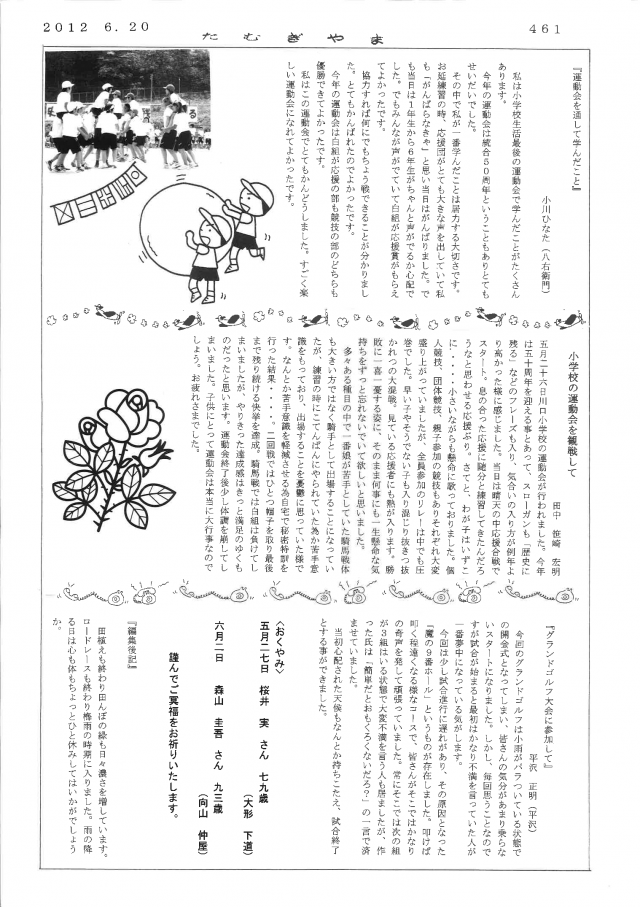 2012 6.20
たむぎやま
461
『運動会を通して学んだこと』
小川ひなた（八右衛門）
私は小学校生活最後の運動会で学んだことがたくさん
あります。
今年の運動会は統合５０周年ということもありとても
せいだいでした。
その中で私が一番学んだことは居力する大切さです。
お延練習の時、応援団がとても大きな声を出していて私
も「がんばらなきゃ」と思い当日はがんばりました。で
も当日は１年生から６年生がちゃんと声がでるか心配で
した。でもみんなが声がでていて白組が応援賞がもらえ
てよかったです。
協力すれば何にでもちょう戦できることが分かりまし
た。とてもかんばれたのでよかったです。
今年の運動会は白組が応援の部も競技の部のどちらも
優勝できてよかったです。
私はこの運動会でとてもかんどうしました。すごく楽
しい運動会になれてよかったです。
小学校の運動会を観戦して
田中 笹崎 宏明
五月二十六日川口小学校の運動会が行われました。今年
は五十周年を迎える事とあって、スローガンも「歴史に
残る」などのフレーズも入り、気合いの入り方が例年よ
り高かった様に感じました。当日は晴天の中応援合戦で
スタート。息の合った応援に随分と練習してきたんだろ
うなと思わせる応援ぶり。さてと、わが子はいずこ
に・・・小さいながらも懸命に歌っております。個
人競技、団体競技、親子参加の競技もありそれぞれ大変
盛り上がっていましたが、全員参加のリレーは中でも圧
巻でした。早い子やそうでない子も入り混じり抜きつ抜
かれつの大混戦。見ている応援者にも熱が入ります。勝
敗に一喜一憂する姿に、そのまま何事にも一生懸命な気
持ちをずっと忘れないでいて欲しいと思いました。
多々ある種目の中で一番娘が苦手としていた騎馬戦体
も大きい方ではなく騎手として出場することになってい
たが、練習の時にこてんぱんにやられていた為か苦手意
識をもっており、出場することを憂鬱に思っていた様で
す。なんとか苦手意識を軽減させる為自宅で秘密特訓を
行った結果・・・・。二回戦ではひとつ帽子を取り最後
まで残り続ける快挙を達成。騎馬戦では白組は負けてし
まいましたが、やりきった達成感はきっと満足のゆくも
のだったと思います。運動会終了後少し体調を崩してし
まいました。子供にとって運動会は本当に大行事なので
しょう。お疲れさまでした。
『グランドゴルフ大会に参加して』
平沢 正明（平沢）
今回のグランドゴルフは小雨がパラついている状態で
の開会式となってしまい、皆さんの気分があまり乗らな
いスタートになりました。しかし、毎回思うことなので
すが試合が始まると最初はかなり不満を言っていた人が
一番夢中になっている気がします。
今回は少し試合進行に遅れがあり、その原因となった
『魔の９番ホール』というものが存在しました。叩けば
叩く程遠くなる様なコースで、皆さんがそこではかなり
の奇声を発して頑張っていました。常にそこでは次の組
が３組はいる状態で大変不満を言う人も居ましたが、作
った氏は「簡単だとおもくろくないだろ？」の一言で済
ませていました。
当初心配された天候もなんとか持ちこたえ、試合終了
とする事ができました。
〈おくやみ〉
五月二七日 桜井 実 さん 七九歳
（大形 下道）
六月二日 森山 圭吾 さん 九三歳
（向山 仲屋）
謹んでご冥福をお祈りいたします。
『編集後記』
田植えも終わり田んぼの緑も日々濃さを増しています。
ロードレースも終わり梅雨の時期に入りました。雨の降
る日は心も体もちょっとひと休みしてはいかがでしょう
か。